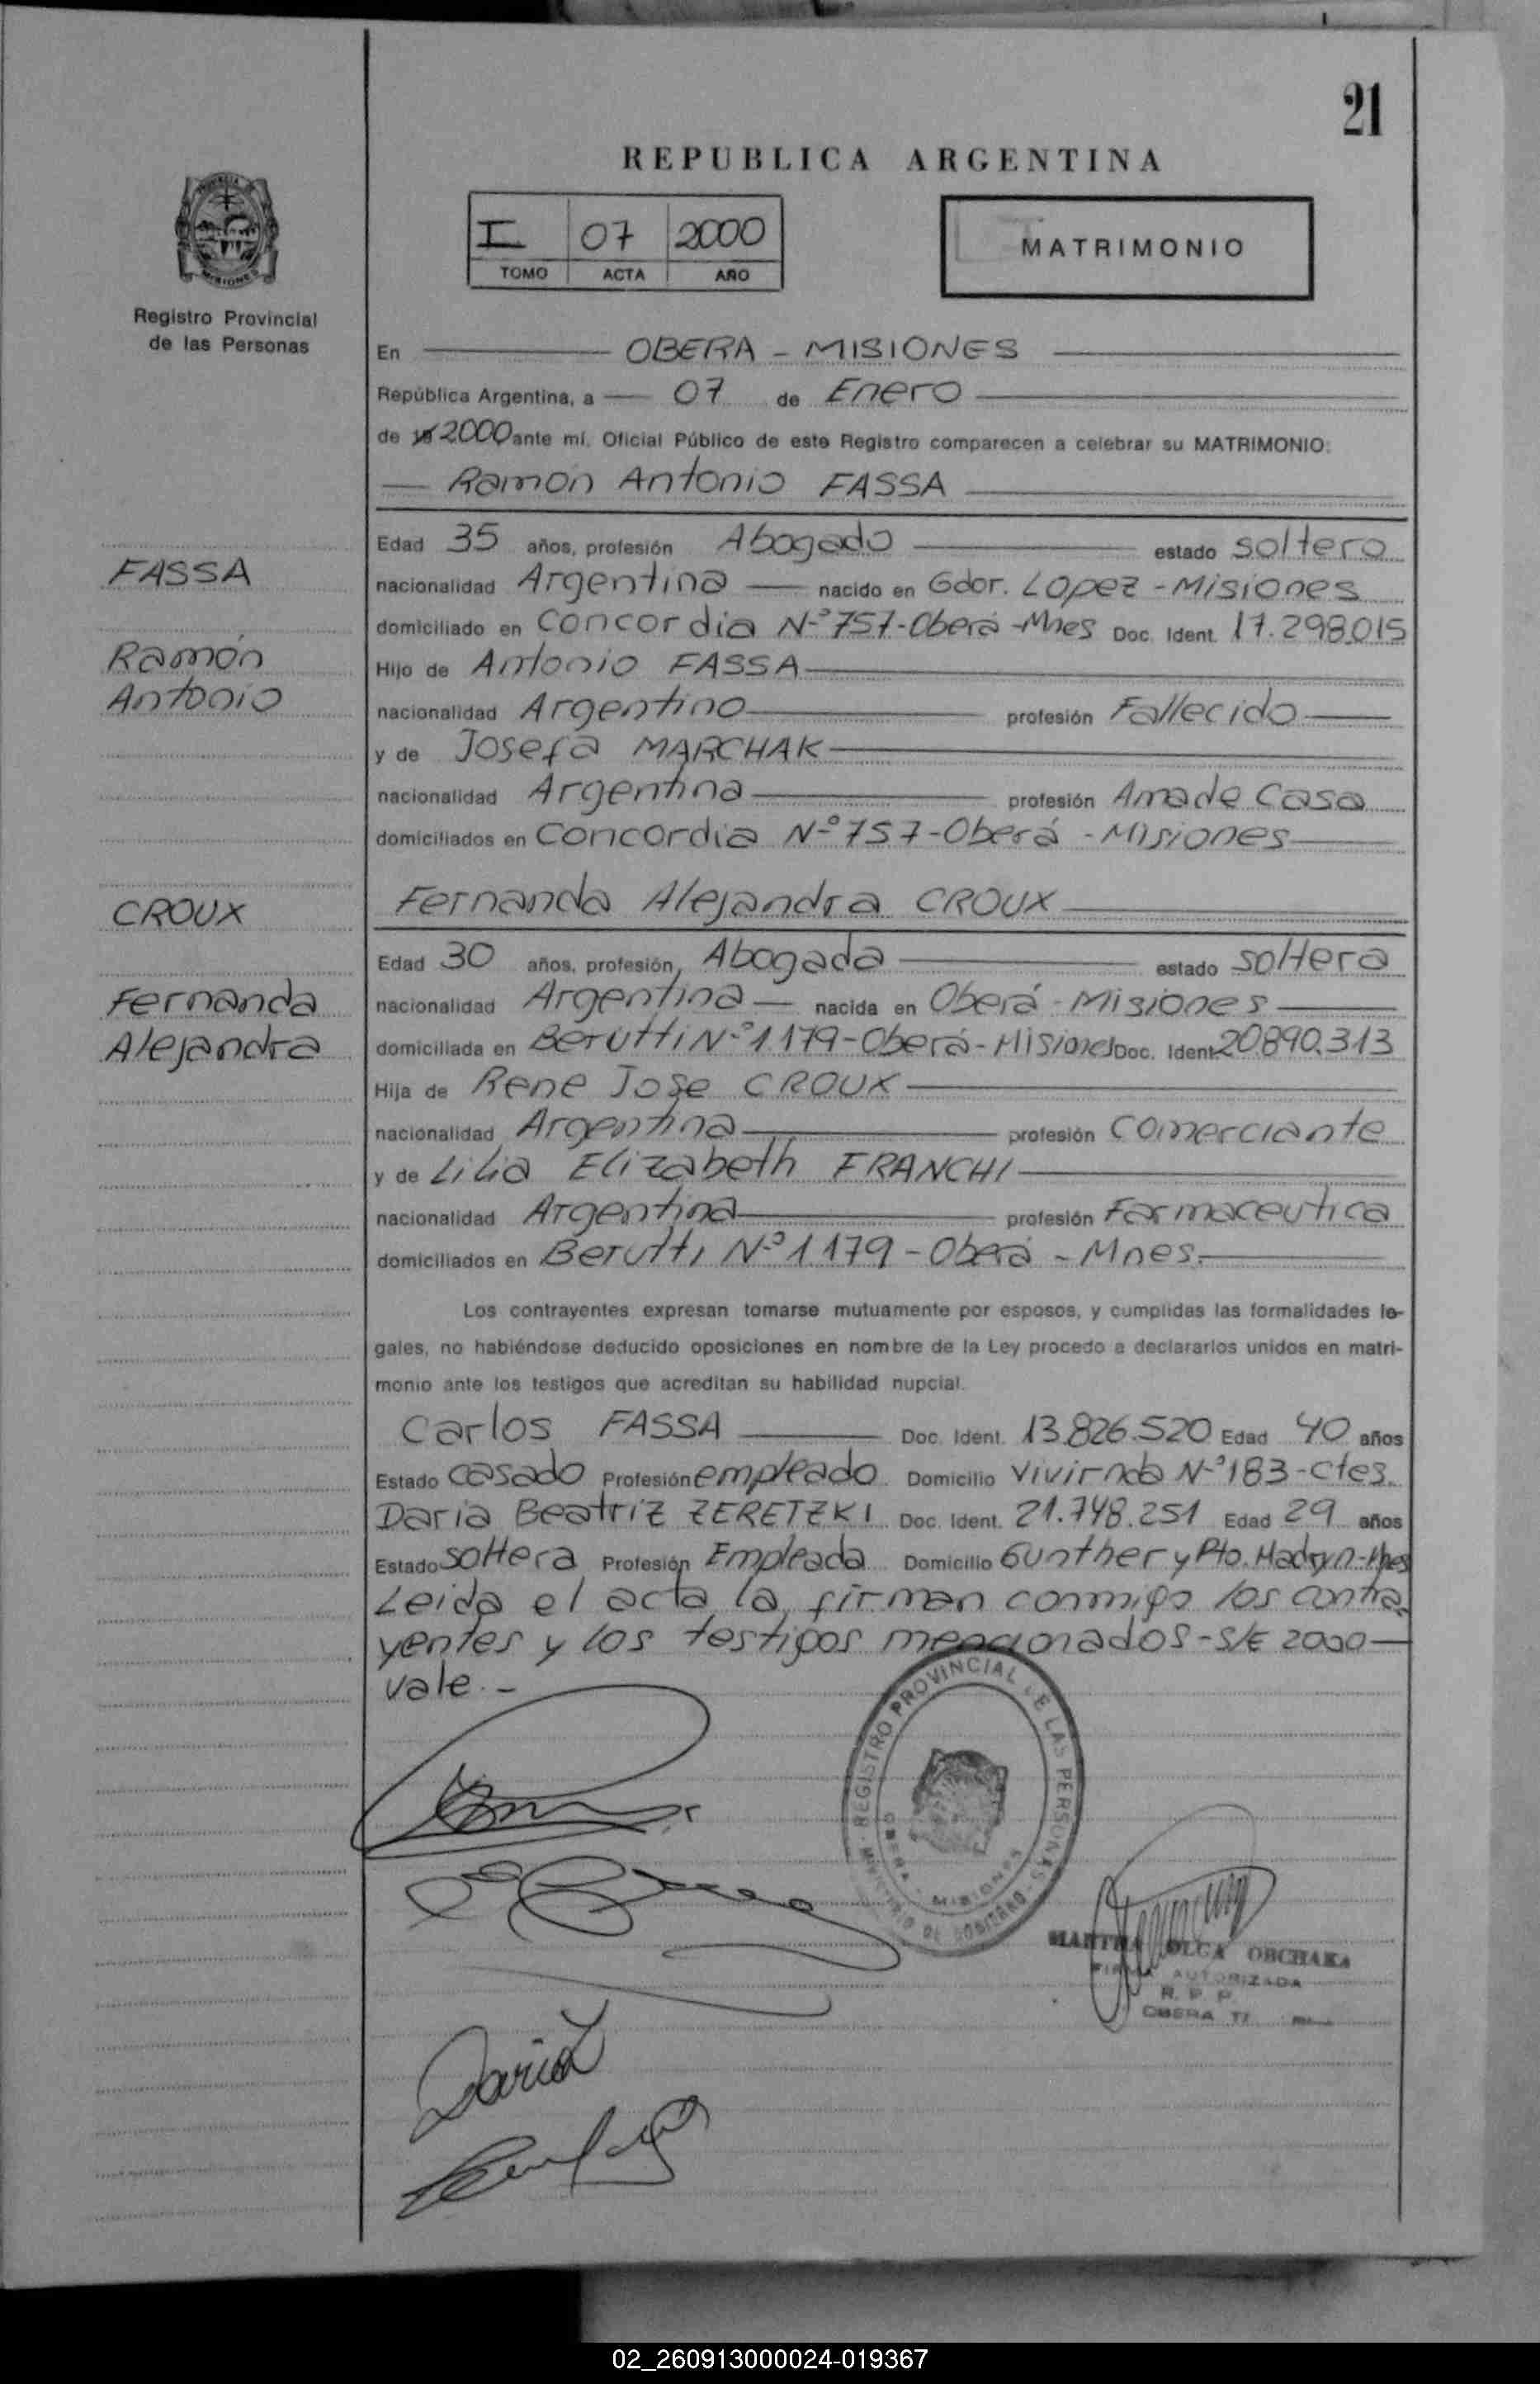 21
REPUBLICA ARGENTINA
I 07 2000
TOMO ACTA AÑO
MATRIMONIO
MISIONES
Registro Provincial
de las Personas
En OBERA - MISIONES
República Argentina, a 07 de Enero
de 19 2000 ante mí, Oficial Público de este Registro comparecen a celebrar su MATRIMONIO:
Ramón Antonio FASSA
Edad 35 años, profesión Abogado estado soltero
FASSA
nacionalidad Argentina nacido en Gdor. Lopez - Misiones
domiciliado en Concordia N-º 757-Oberá-Mnes Doc. Ident. 17.298.015
Ramón
Hijo de Antonio FASSA
Antonio
nacionalidad Argentino profesión Fallecido
y de Josefa MARCHAK
nacionalidad Argentina profesión Ama de Casa
domiciliados en Concordia N-º 757-Oberá - Misiones
CROUX
Fernanda Alejandra CROUX
Edad 30 años, profesión, Abogada estado soltera
Fernanda
nacionalidad Argentina nacida en Oberá - Misiones
Alejandra
domiciliada en Berutti N-º 1.179-Oberá-Misiones Doc. Ident 20.890.313
Hija de Rene Jose CROUX
nacionalidad Argentina profesión Comerciante
y de Lilia Elizabeth FRANCHI
nacionalidad Argentina profesión Farmaceutica
domiciliados en Berutti N-º 1.179 - Oberá - Mnes.
Los contrayentes expresan tomarse mutuamente por esposos, y cumplidas las formalidades le-
gales, no habiéndose deducido oposiciones en nombre de la Ley procedo a declararlos unidos en matri-
monio ante los testigos que acreditan su habilidad nupcial.
Carlos FASSA Doc. Ident. 13.826.520 Edad 40 años
Estado casado Profesión empleado Domicilio N-º 183-Ctes.
Daria Beatriz ZERETZKI Doc. Ident. 21.748.251 Edad 29 años
Estado soltera Profesión Empleada Domicilio Gunther y Pto. Madryn-Mnes
Leida el acta la firman conmigo los contra-
yentes y los testigos mencionados-S/E 2000
vale.-
REGISTRO PROVINCIAL DE LAS PERSONAS
MINISTERIO DE GOBIERNO
OBERA - MISIONES
MARTHA OLGA OBCHAKA
FIRMA AUTORIZADA
R. P. P.
OBERA
Daria Z
02_260913000024-019367